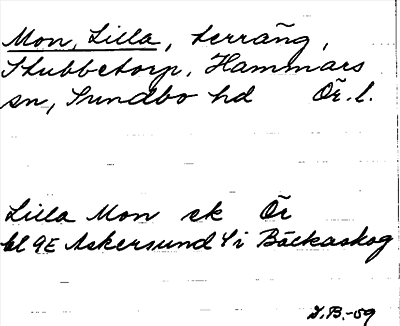 Mon, Lilla, terräng,
Stubbetorp, Hammars
sn, Sundbo hd Ör. l.
Lilla Mon ek Ör
bl 9E Askersund 4 i Bäckaskog
J.B.-59